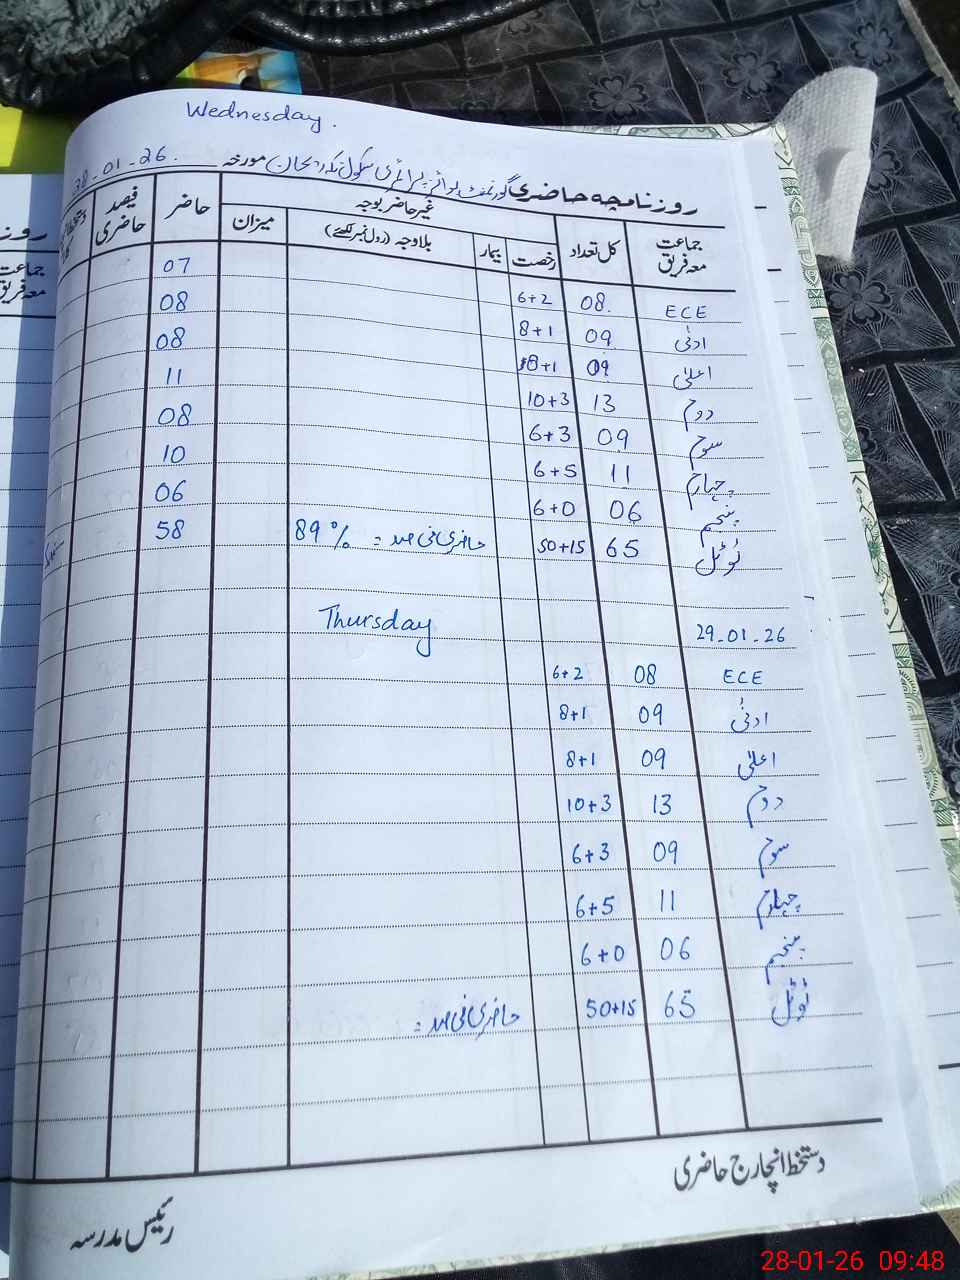 Wednesday.
روزنامچہ حاضری گورنمنٹ بوائز پرائمری سکول مورخہ 28-01-26.
جماعت معہ فریق کل تعداد غیر حاضر بوجہ میزان حاضر فیصد حاضری
رخصت بیمار بلاوجہ (رول نمبر لکھئے)
ECE 08. 6+2 07
ادنیٰ 09 8+1 08
اعلیٰ 09 8+1 08
دوم 13 10+3 11
سوم 09 6+3 08
چہارم 11 6+5 10
پنجم 06 6+0 06
ٹوٹل 65 50+15 حاضری فی صد = 89% 58
29-01-26 Thursday
ECE 08 6+2
ادنیٰ 09 8+1
اعلیٰ 09 8+1
دوم 13 10+3
سوم 09 6+3
چہارم 11 6+5
پنجم 06 6+0
ٹوٹل 65 50+15 حاضری فی صد =
دستخط انچارج حاضری
رئیس مدرسہ
28-01-26 09:48